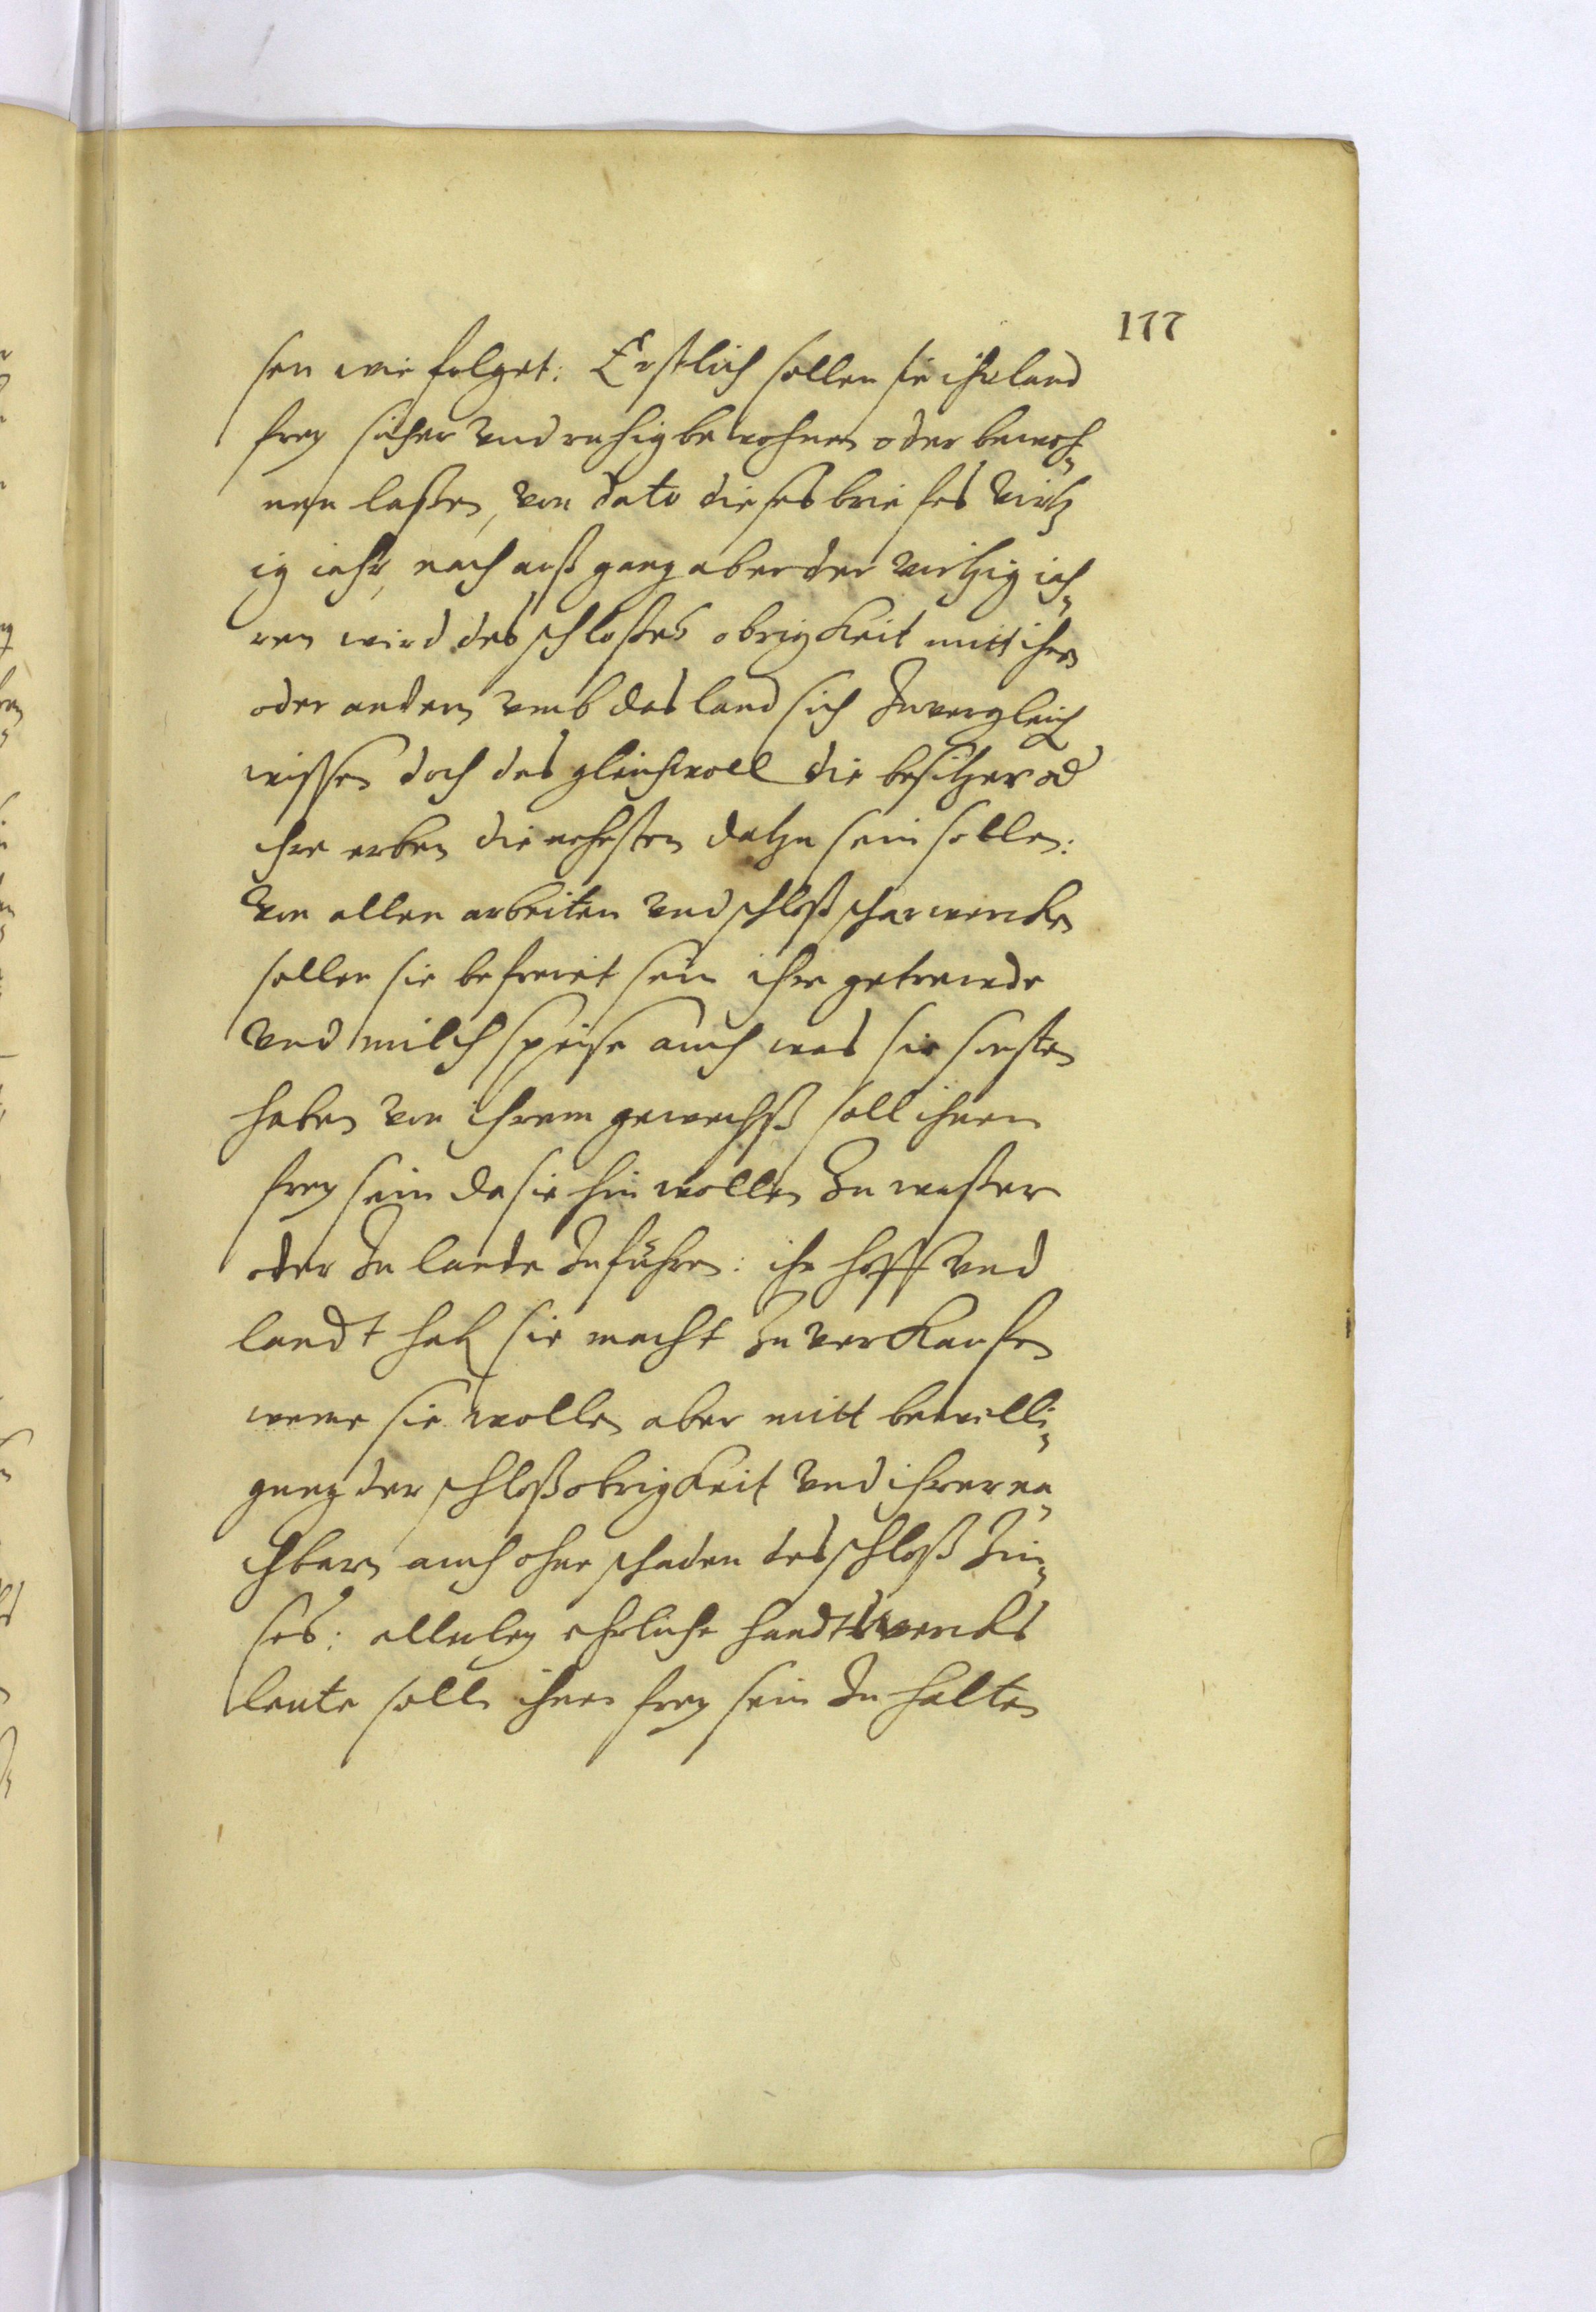 177
sen wie folget: Erstlich sollen sie ihr land
frey sicher vnd ruhig bewohnen oder bewoh¬
nen laßen, von dato dieses briefes viertz
ig iahr, nach außgang aber der viertzig iah¬
ren wird des schloßes obrigkeit mitt ihnen
oder andern vmb das land sich zuvergleich
wissen doch das gleichwoll die besitzer od
ihre erben die nehesten datzu sein sollen:
von allen arbeiten vnd schloß scharwercken
sollen sie befreiet sein ihre getreyde
vnd milchspeise auch was sie sonsten
haben von ihrem gewechß soll ihnen
frey sein da sie hin wollen zu waßer
oder zu lande zuführen: ihr hoff vnd
landt hab sie macht zu verkaufen
weme sie wollen aber mitt bewilli¬
gung der schloßobrigkeit vnd ihrer na¬
chbarn auch ohne schaden des schloß Zin¬
ses: allerley ehrliche handtswercks
leute solln ihnen frey sein zu halten